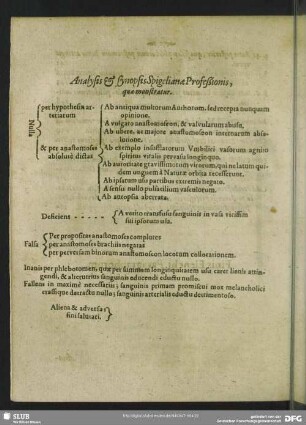 Analysis & synopsis Spigelianæ Professionis,
quæ monstratur.
Nulla
per hypothesin ar-
teriarum
& per anastomoses
absolutè dictas
Ab antiqua multorum Authorum, sed recepta nusquam
opinione.
A vulgato anastomoseon, & valvularum abuse.
Ab ubere, ac majore anastomoseon internarum abso-
lutione.
Ab exemplo insufflatorum Vmbilici vasorum agnini
spiritus vitalis pervasa longinquo.
Ab autoritate gravissimorum virorum, qui ne latum qui-
dem unguem à Naturæ orbita recesserunt.
Ab ipso usu partibus externis negato.
A sensu nullo pulsatilium vasculorum.
Ab autopsia aberrata.
Deficiens
A vorito transfusu sanguinis in vasa vicissim
sui ipsorum usu.
Falsa
Per propositas anastomoses complures
per anastomoses brachiis negatas
per perversam binorum anastomoseon locorum collocationem.
Inanis per phlebotomen, quæ per summam longinquitatem usu caret lienis attin-
gendi, & aberrantis sanguinis educendi eductu nullo.
Fallens in maximè necessariis; sanguinis primum promiscui mox melancholici
crassique detractu nullo; sanguinis arterialis eductu detrimentoso.
Aliena & adversa
fini salutari.
SLUB
Wir führen Wissen.